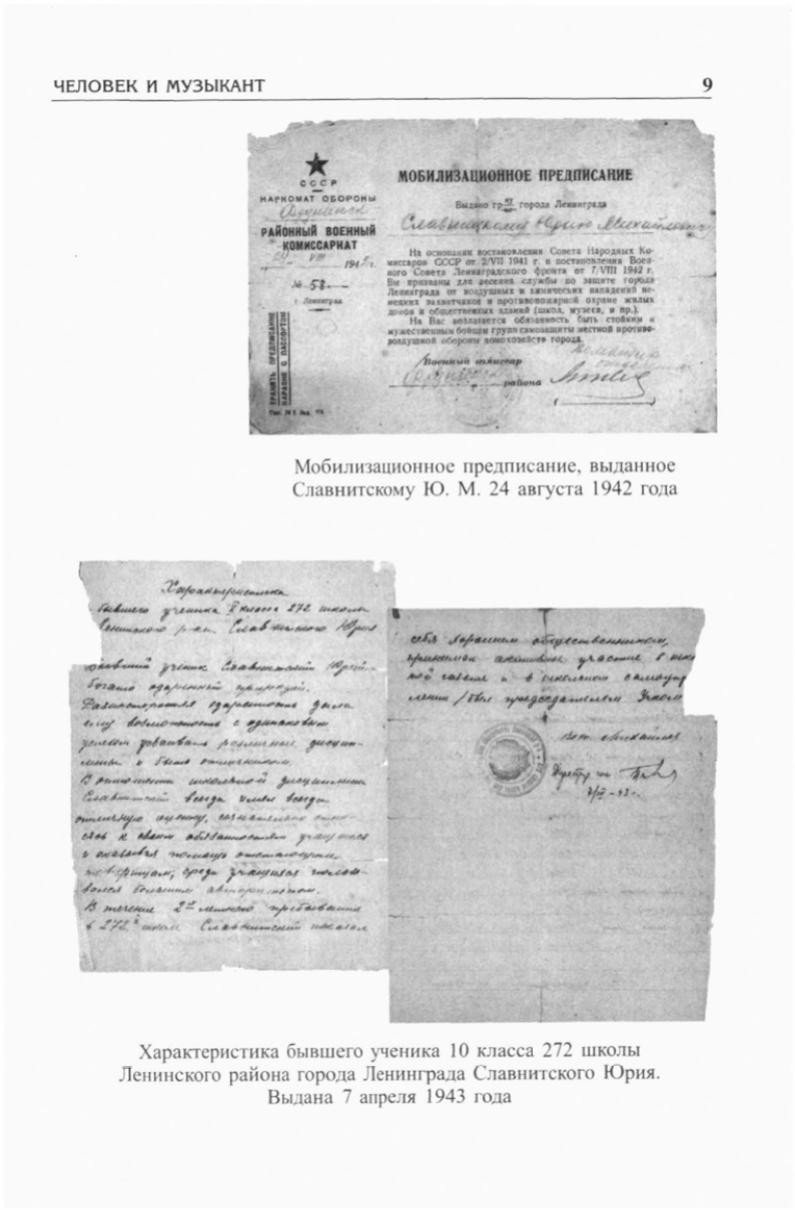 ЧЕЛОВЕК И МУЗЫКАНТ 9
СССР
НАРКОМАТ ОБОРОНЫ
РАЙОННЫЙ ВОЕННЫЙ
КОМИССАРИАТ
VIII 1942 г.
№ 58
г. Ленинград
ХРАНИТЬ ПРЕДПИСАНИЕ
НАРАВНЕ С ПАСПОРТОМ
МОБИЛИЗАЦИОННОЕ ПРЕДПИСАНИЕ
Выдано гр. города Ленинграда
Славницкому Юрию Михайловичу
На основании постановления Совета Народных Ко-
миссаров СССР от 2/VII 1941 г. и постановления Воен-
ного Совета Ленинградского фронта от 7/VIII 1942 г.
Вы призваны для несения службы по защите города
Ленинграда от воздушных и химических нападений не-
мецких захватчиков и противопожарной охране жилых
домов и общественных зданий (школ, музеев, и пр.).
На Вас возлагается обязанность быть стойким и
мужественным бойцом групп самозащиты местной противо-
воздушной обороны домохозяйств города.
Военный комиссар
района
Мобилизационное предписание, выданное
Славнитскому Ю. М. 24 августа 1942 года
Характеристика
бывшего ученика X класса 272 школы
Ленинского р-на Славнитского Юрия
Бывший ученик Славнитский Юрий
богато одаренный природой.
Разносторонняя одаренность дала
ему возможность с одинаковым
успехом усваивать различные дисцип-
лины и быть отличником.
В отношении школьной дисциплины
Славнитский всегда имел
отличную оценку, сознательно относ-
ясь к своим обязанностям учащегося
и оказывая помощь отстающим
товарищам, среди учащихся пользо-
вался большим авторитетом.
В течение 2-х летнего пребывания
в 272 школе Славнитский показал
себя хорошим общественником,
принимал активное участие в
ной газете и в школьном самоуп
лении /был председателем Учком
Директор
Характеристика бывшего ученика 10 класса 272 школы
Ленинского района города Ленинграда Славнитского Юрия.
Выдана 7 апреля 1943 года